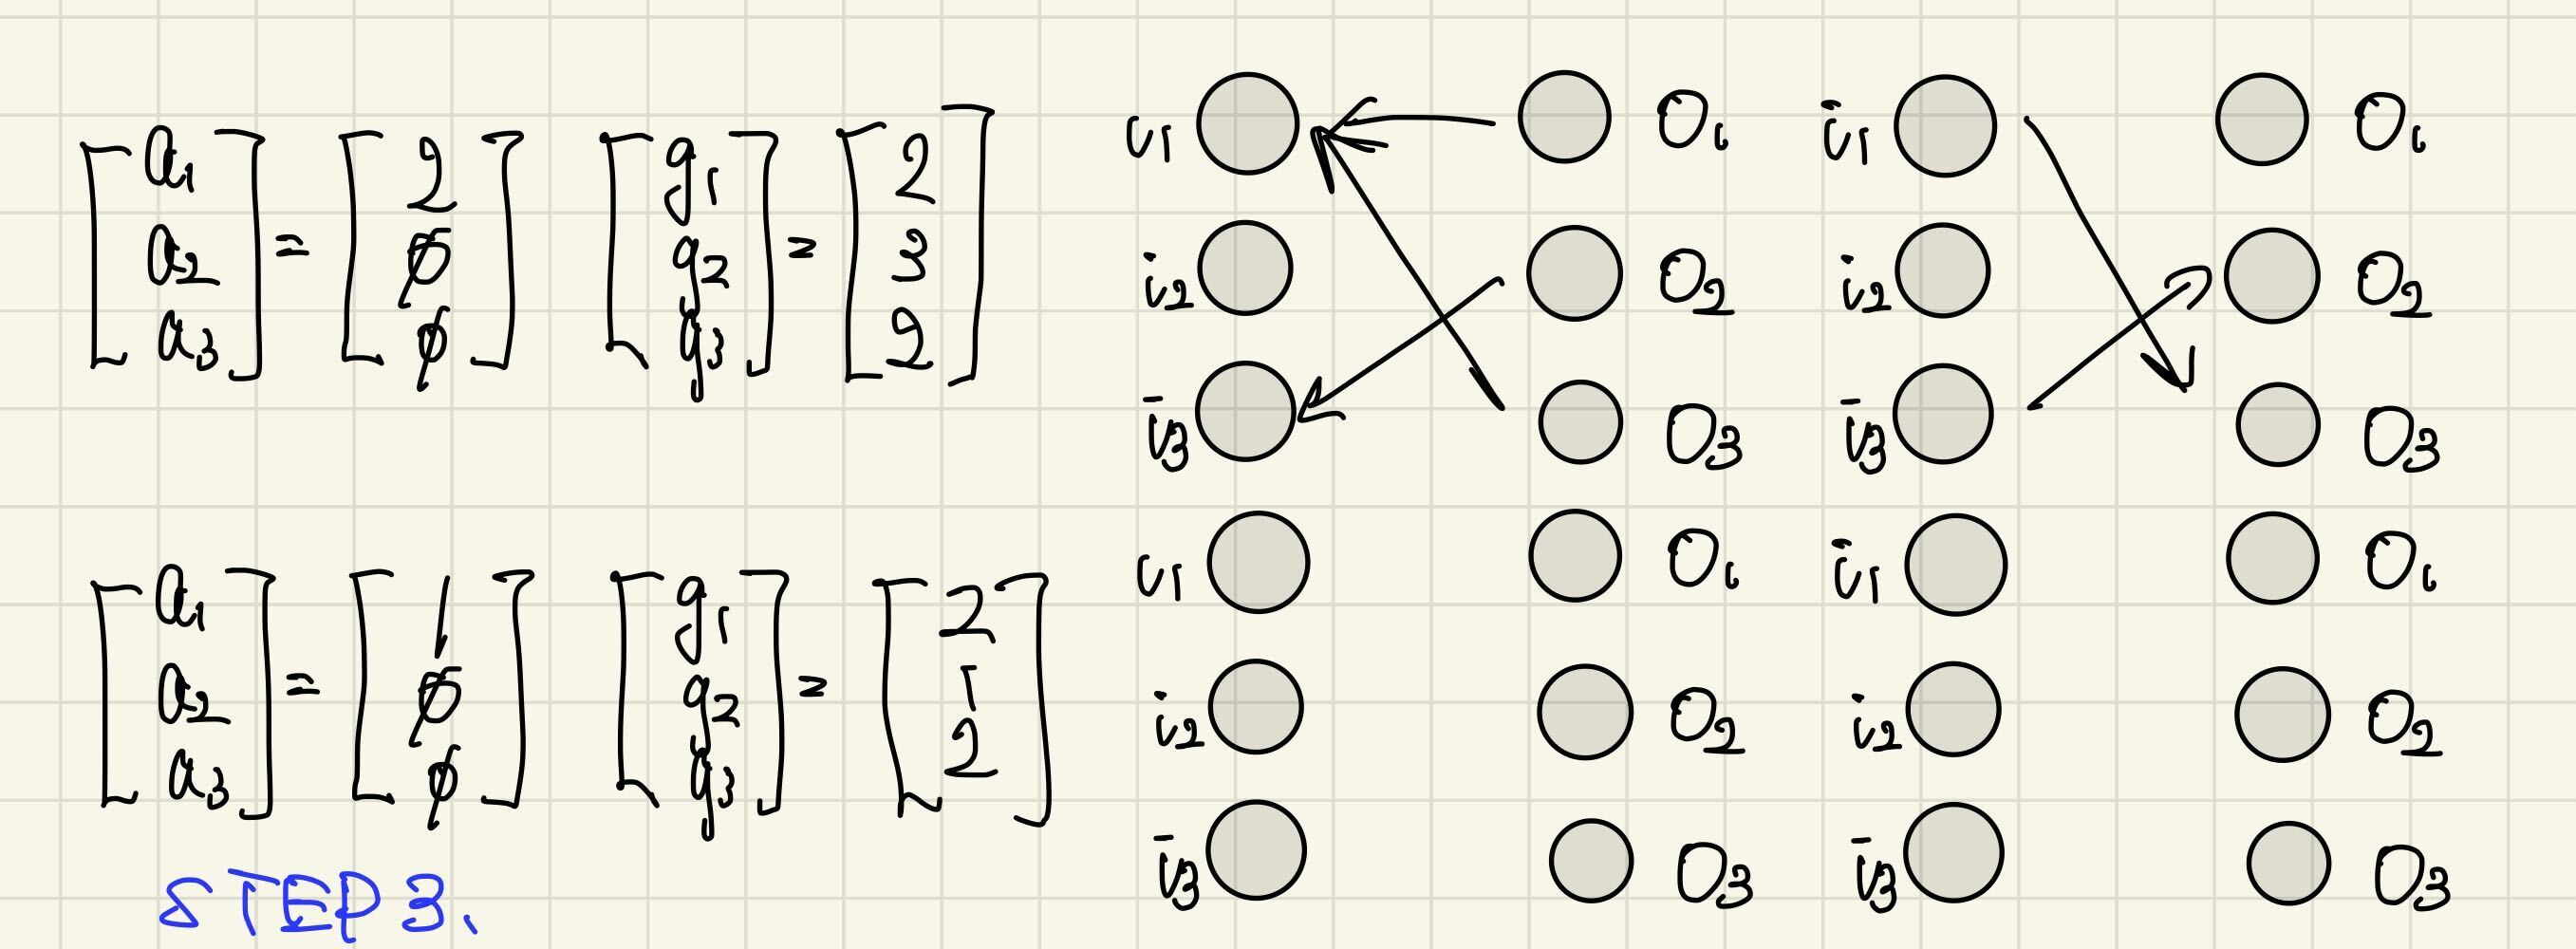 [a1 a2 a3] = [2 ø ø] [g1 g2 g3] = [2 3 2]
i1 O1 i1 O1
i2 O2 i2 O2
i3 O3 i3 O3
[a1 a2 a3] = [1 ø ø] [g1 g2 g3] = [2 1 2]
i1 O1 i1 O1
i2 O2 i2 O2
i3 O3 i3 O3
STEP 3.